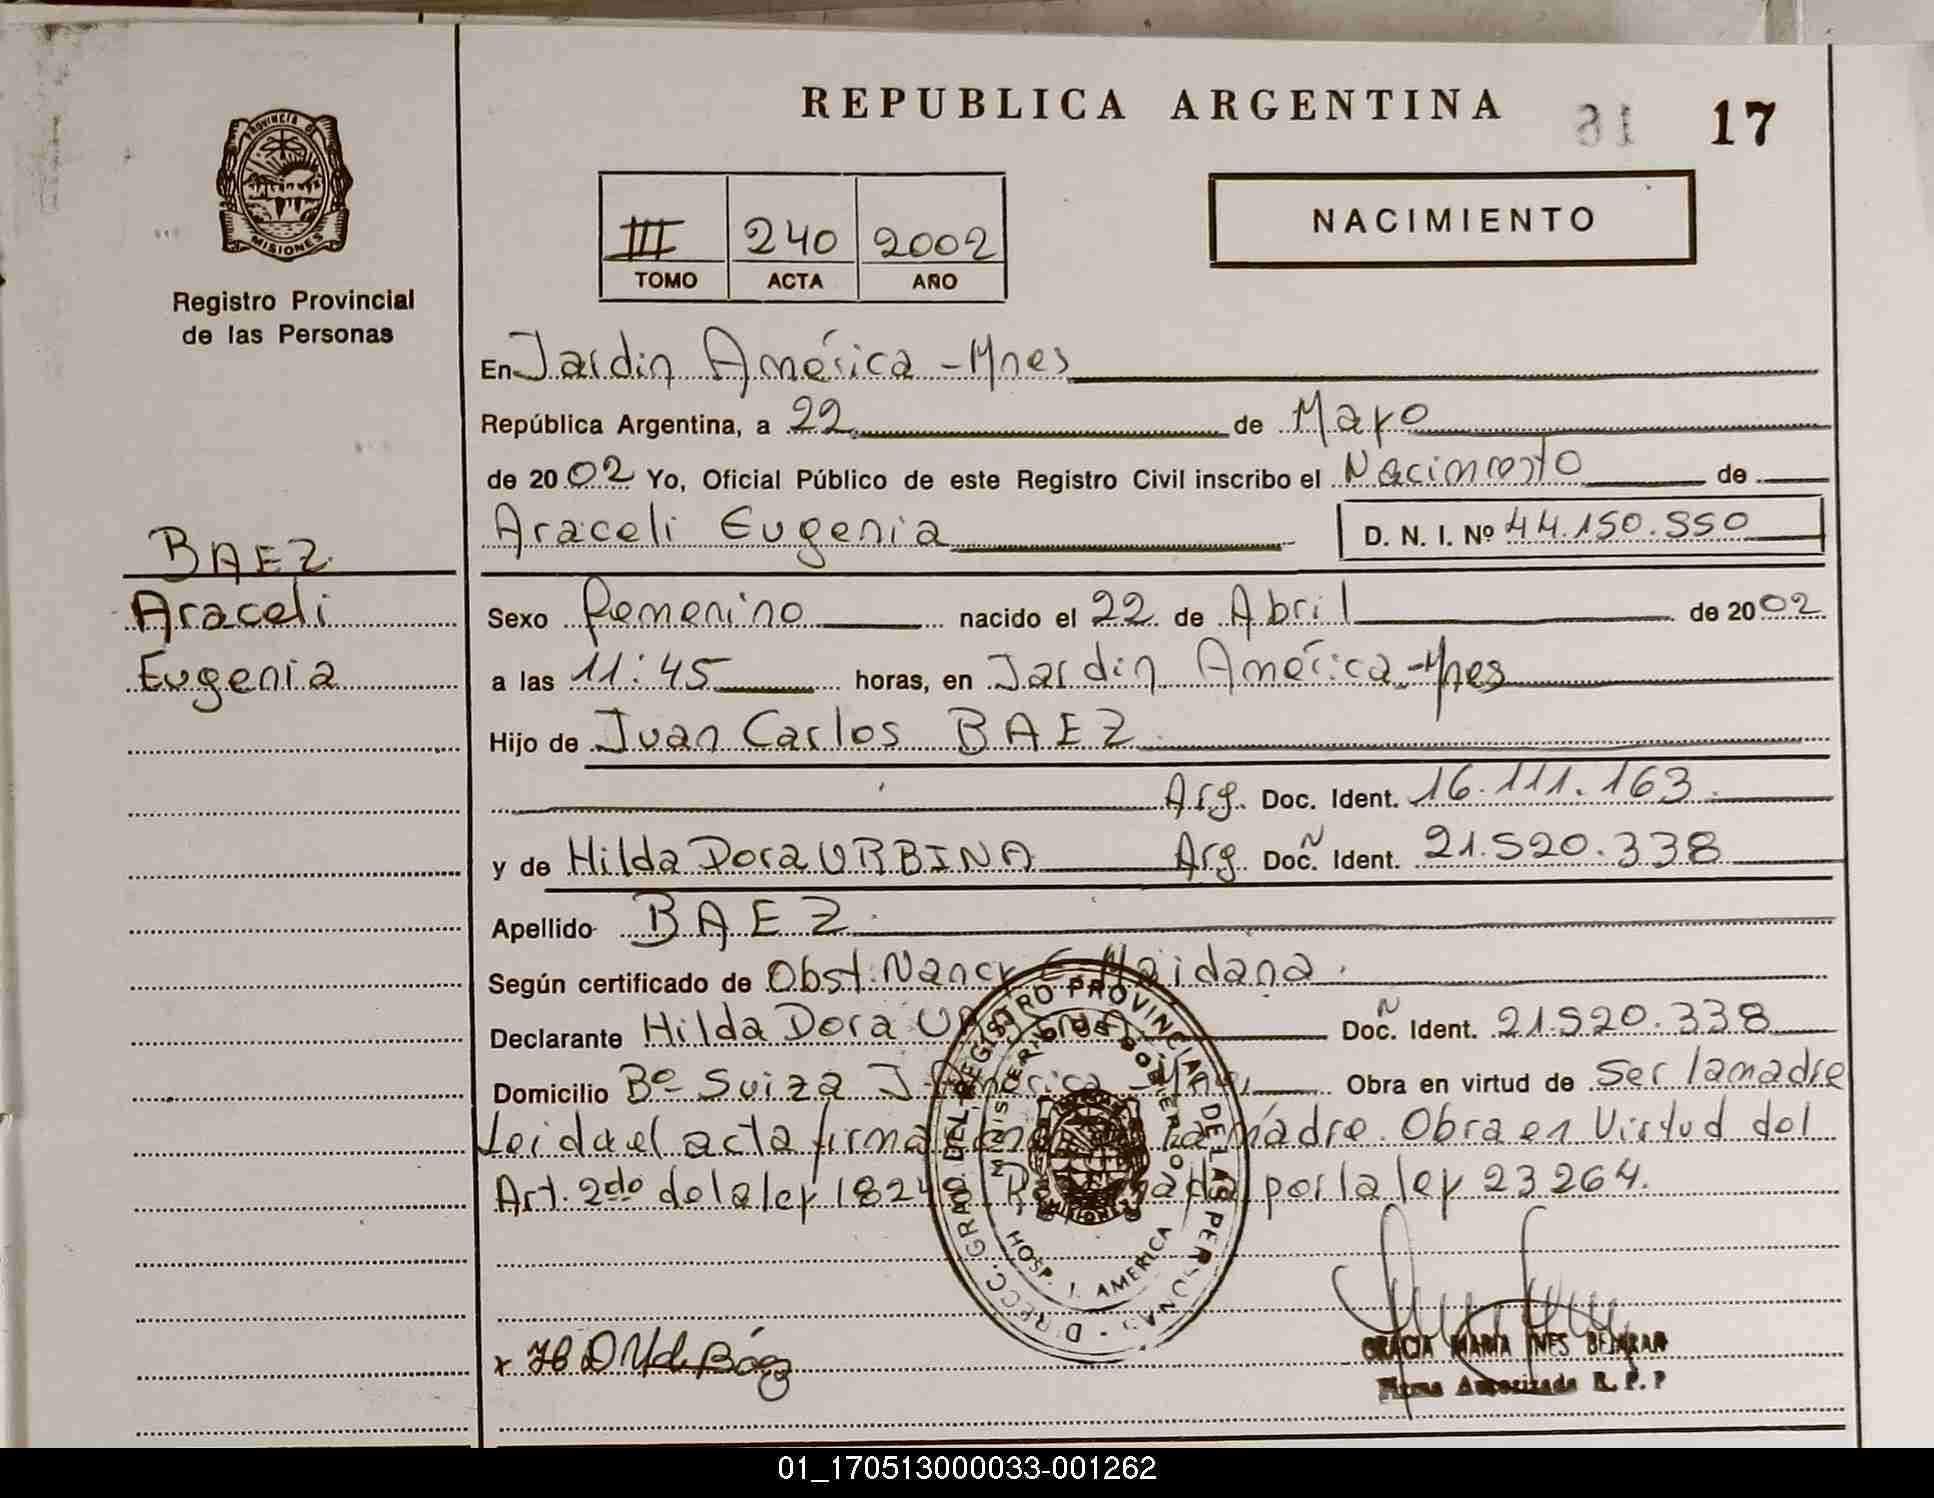 REPUBLICA ARGENTINA
17
PROVINCIA DE
MISIONES
Registro Provincial
de las Personas
III 240 2002
TOMO ACTA AÑO
NACIMIENTO
En Jardin América - Mnes
República Argentina, a 22 de Mayo
de 2002 Yo, Oficial Público de este Registro Civil inscribo el Nacimiento de
Araceli Eugenia D. N. I. Nº 44.150.550
BAEZ
Araceli
Eugenia
Sexo femenino nacido el 22 de Abril de 2002
a las 11:45 horas, en Jardin América - Mnes
Hijo de Juan Carlos BAEZ
Arg. Doc. Ident. 16.111.163
y de Hilda Dora URBINA Arg. Doc. N Ident. 21.520.338
Apellido BAEZ
Según certificado de Obst. Nancy E Maidana.
Declarante Hilda Dora Doc. N Ident. 21.520.338
Domicilio Bº Suiza J. América Obra en virtud de Ser la madre
Leida el acta firma la madre. Obra en Virtud del
Art. 2do de la ley por la ley 23264.
DIRECC. GRAL. DEL REGISTRO PROVINCIAL DE LAS PERSONAS
MINISTERIO DE GOBIERNO
HOSP. J. AMERICA
MISIONES
GRACIA MARIA INES
Firma Autorizada R. P. P
01_170513000033-001262